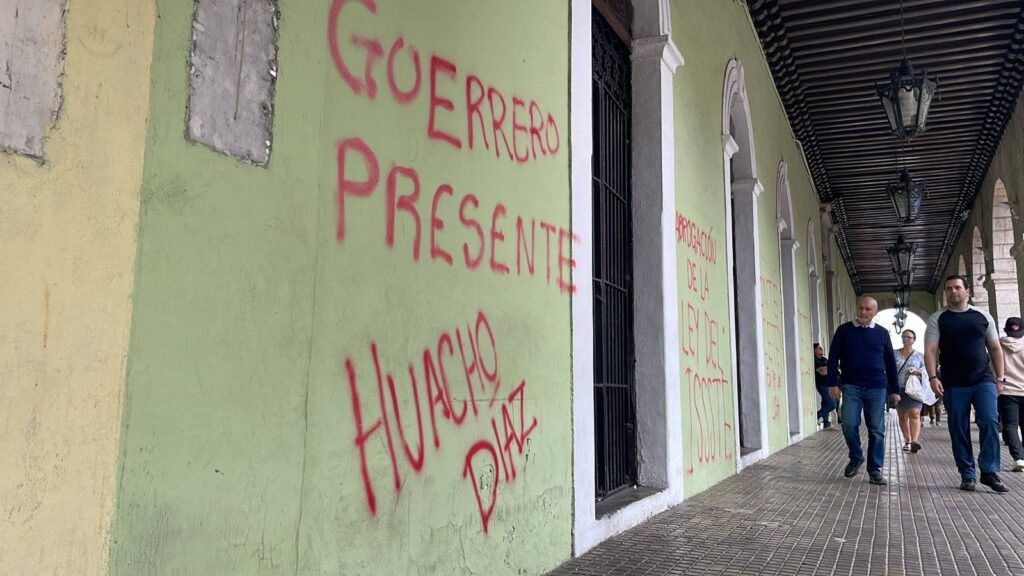 GUERRERO
PRESENTE
HUACHO
DIAZ
ABROGACIÓN
DE LA
LEY DEL
ISSSTE